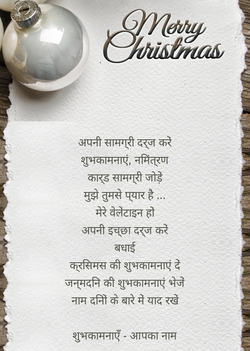 Merry
Christmas
अपनी सामग्री दर्ज करे
शुभकामनाएं, निमंत्रण
कार्ड सामग्री जोड़े
मुझे तुमसे प्यार है ...
मेरे वेलेंटाइन हो
अपनी इच्छा दर्ज करे
बधाई
क्रिसमस की शुभकामनाएं दे
जन्मदिन की शुभकामनाएं भेजे
नाम दिनों के बारे मे याद रखे
शुभकामनाएँ - आपका नाम